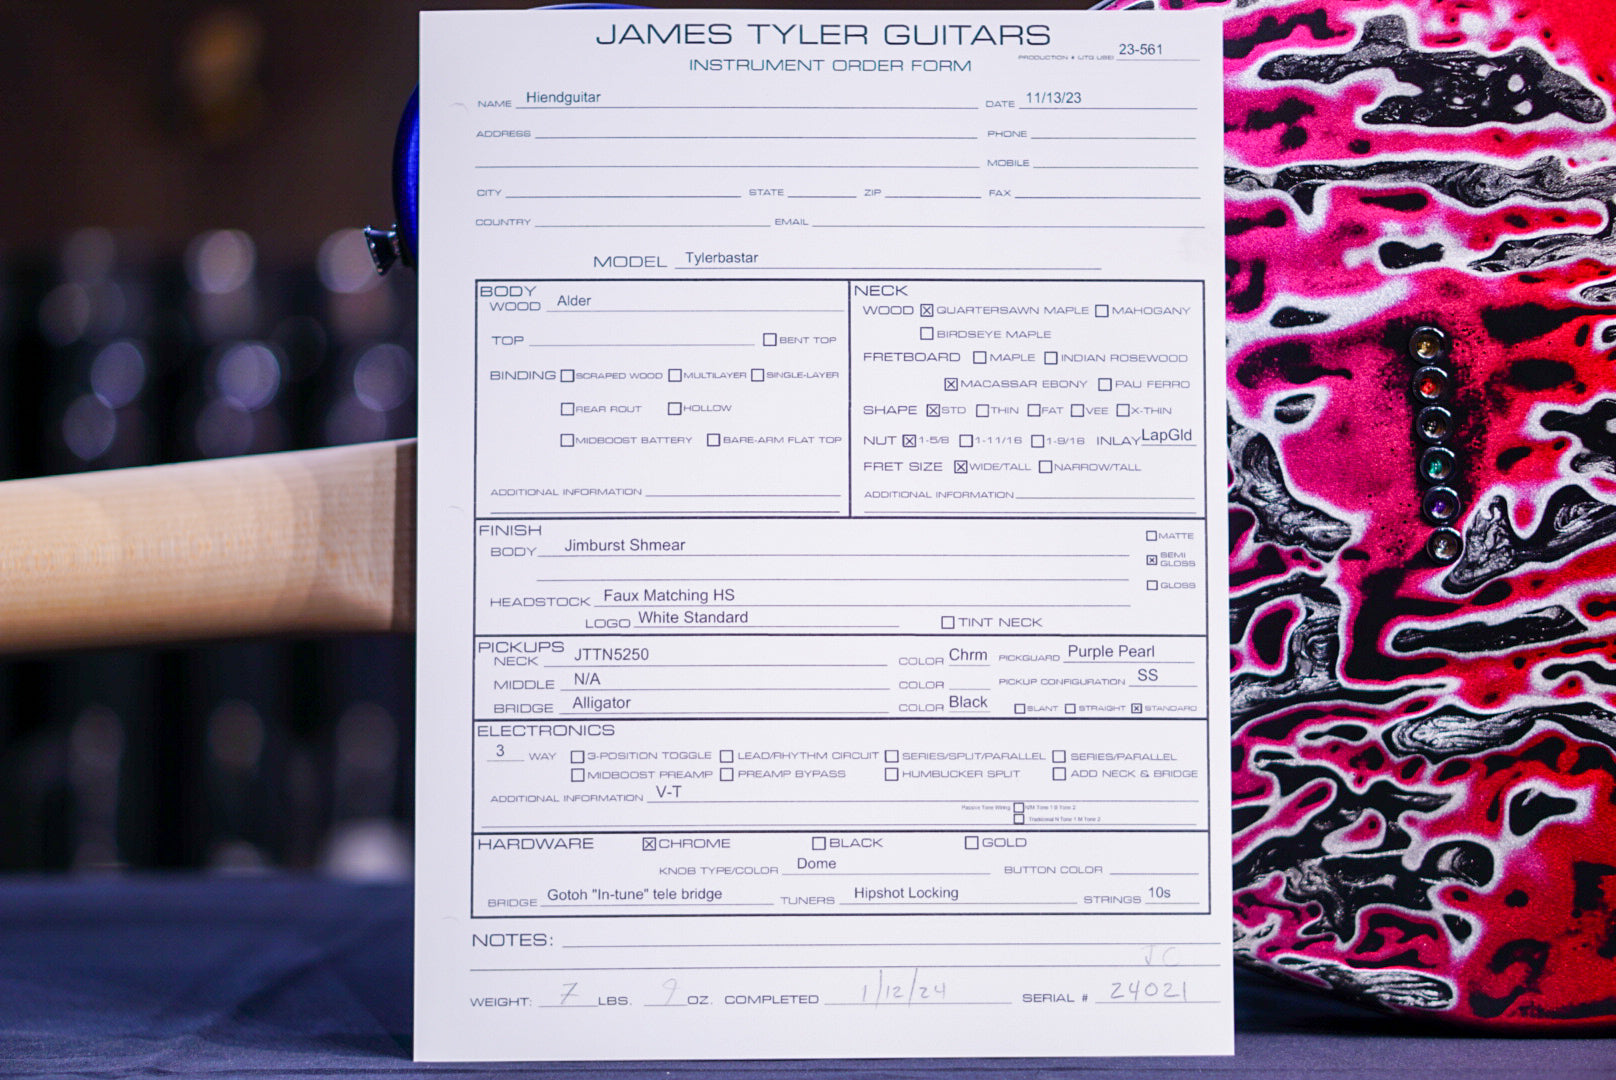 JAMES TYLER GUITARS
INSTRUMENT ORDER FORM
PRODUCTION # (JTG USE) 23-561
NAME Hiendguitar DATE 11/13/23
ADDRESS PHONE
MOBILE
CITY STATE ZIP FAX
COUNTRY EMAIL
MODEL Tylerbastar
BODY
WOOD Alder
TOP ☐ BENT TOP
BINDING ☐ SCRAPED WOOD ☐ MULTILAYER ☐ SINGLE-LAYER
☐ REAR ROUT ☐ HOLLOW
☐ MIDBOOST BATTERY ☐ BARE-ARM FLAT TOP
ADDITIONAL INFORMATION
NECK
WOOD ☒ QUARTERSAWN MAPLE ☐ MAHOGANY
☐ BIRDSEYE MAPLE
FRETBOARD ☐ MAPLE ☐ INDIAN ROSEWOOD
☒ MACASSAR EBONY ☐ PAU FERRO
SHAPE ☒ STD ☐ THIN ☐ FAT ☐ VEE ☐ X-THIN
NUT ☒ 1-5/8 ☐ 1-11/16 ☐ 1-9/16 INLAY LapGld
FRET SIZE ☒ WIDE/TALL ☐ NARROW/TALL
ADDITIONAL INFORMATION
FINISH
BODY Jimburst Shmear
☐ MATTE
☒ SEMI GLOSS
☐ GLOSS
HEADSTOCK Faux Matching HS
LOGO White Standard ☐ TINT NECK
PICKUPS
NECK JTTN5250 COLOR Chrm PICKGUARD Purple Pearl
MIDDLE N/A COLOR PICKUP CONFIGURATION SS
BRIDGE Alligator COLOR Black ☐ SLANT ☐ STRAIGHT ☒ STANDARD
ELECTRONICS
3 WAY ☐ 3-POSITION TOGGLE ☐ LEAD/RHYTHM CIRCUIT ☐ SERIES/SPLIT/PARALLEL ☐ SERIES/PARALLEL
☐ MIDBOOST PREAMP ☐ PREAMP BYPASS ☐ HUMBUCKER SPLIT ☐ ADD NECK & BRIDGE
ADDITIONAL INFORMATION V-T
Passive Tone Wiring ☐ N/M Tone 1 B Tone 2
☐ Traditional N Tone 1 M Tone 2
HARDWARE ☒ CHROME ☐ BLACK ☐ GOLD
KNOB TYPE/COLOR Dome BUTTON COLOR
BRIDGE Gotoh "In-tune" tele bridge TUNERS Hipshot Locking STRINGS 10s
NOTES:
JC
WEIGHT: 7 LBS. 9 OZ. COMPLETED 1/12/24 SERIAL # 24021